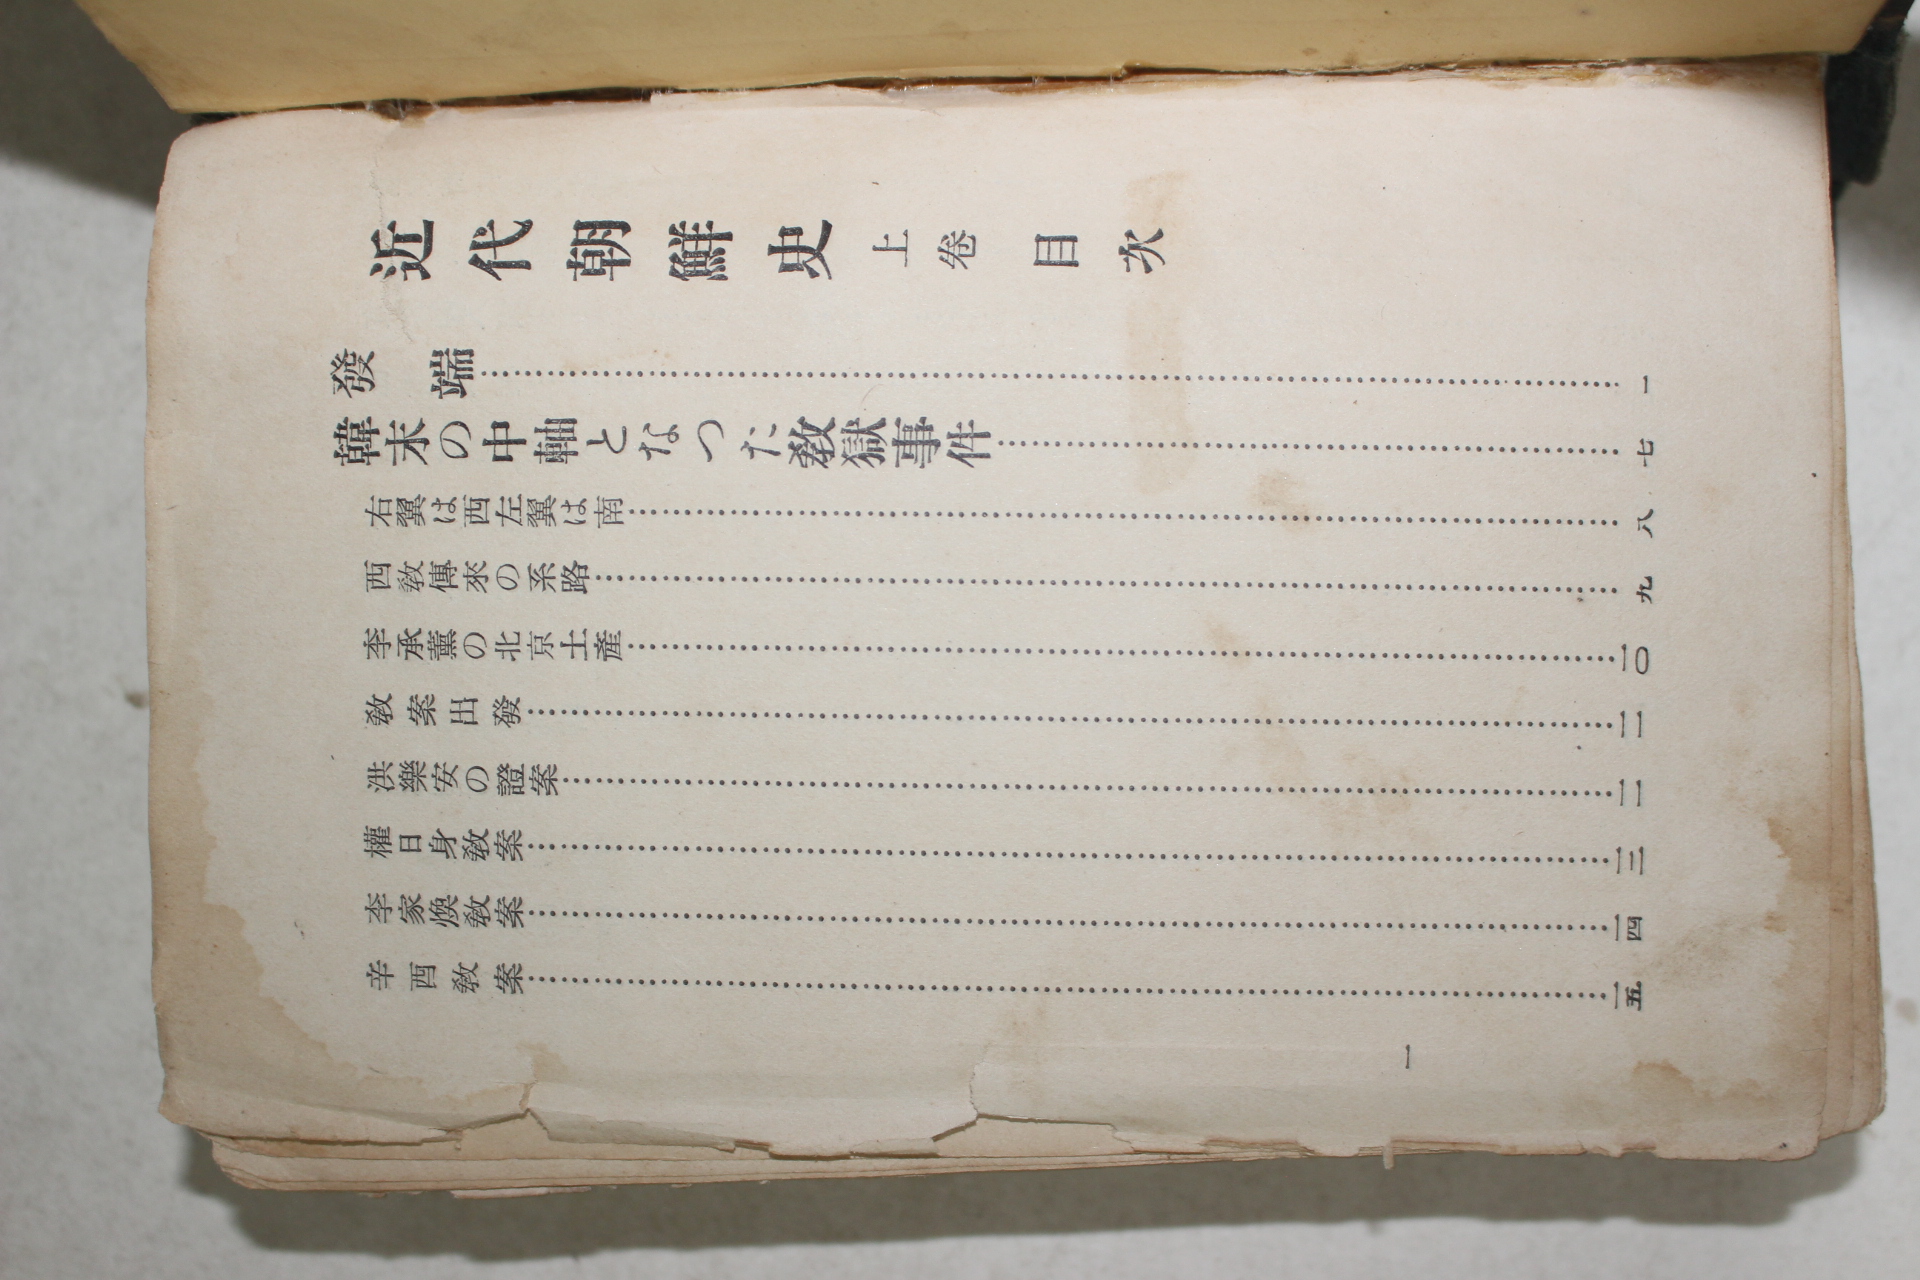 近代朝鮮史 上卷 目次
發端……一
韓末の中軸となつた敎獄事件……七
右翼は西左翼は南……八
西敎傳來の系路……九
李承薰の北京土產……一〇
敎案出發……一一
洪樂安の證案……一二
權日身敎案……一三
李家煥敎案……一四
辛酉敎案……一五
一